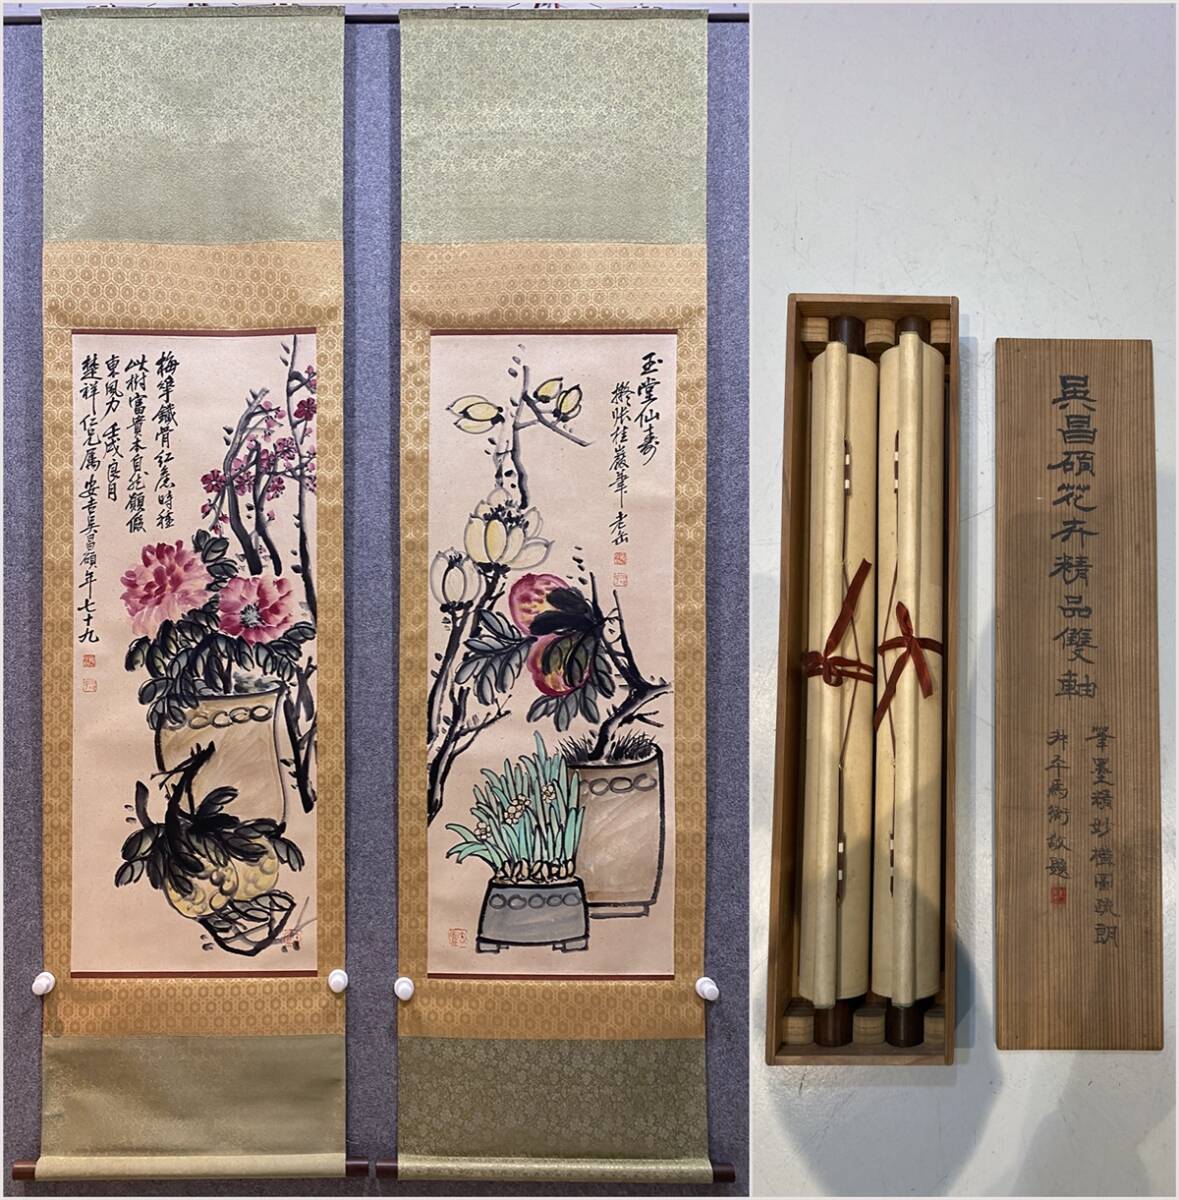 梅華鐵骨紅羞時種
此樹富貴本自然願假
東風力 壬戌良月
楚祥仁兄属 安吉吳昌碩年七十九
玉堂仙壽
擬張桂巖筆 老缶
吳昌碩花卉精品雙軸
筆墨精妙構圖疏朗